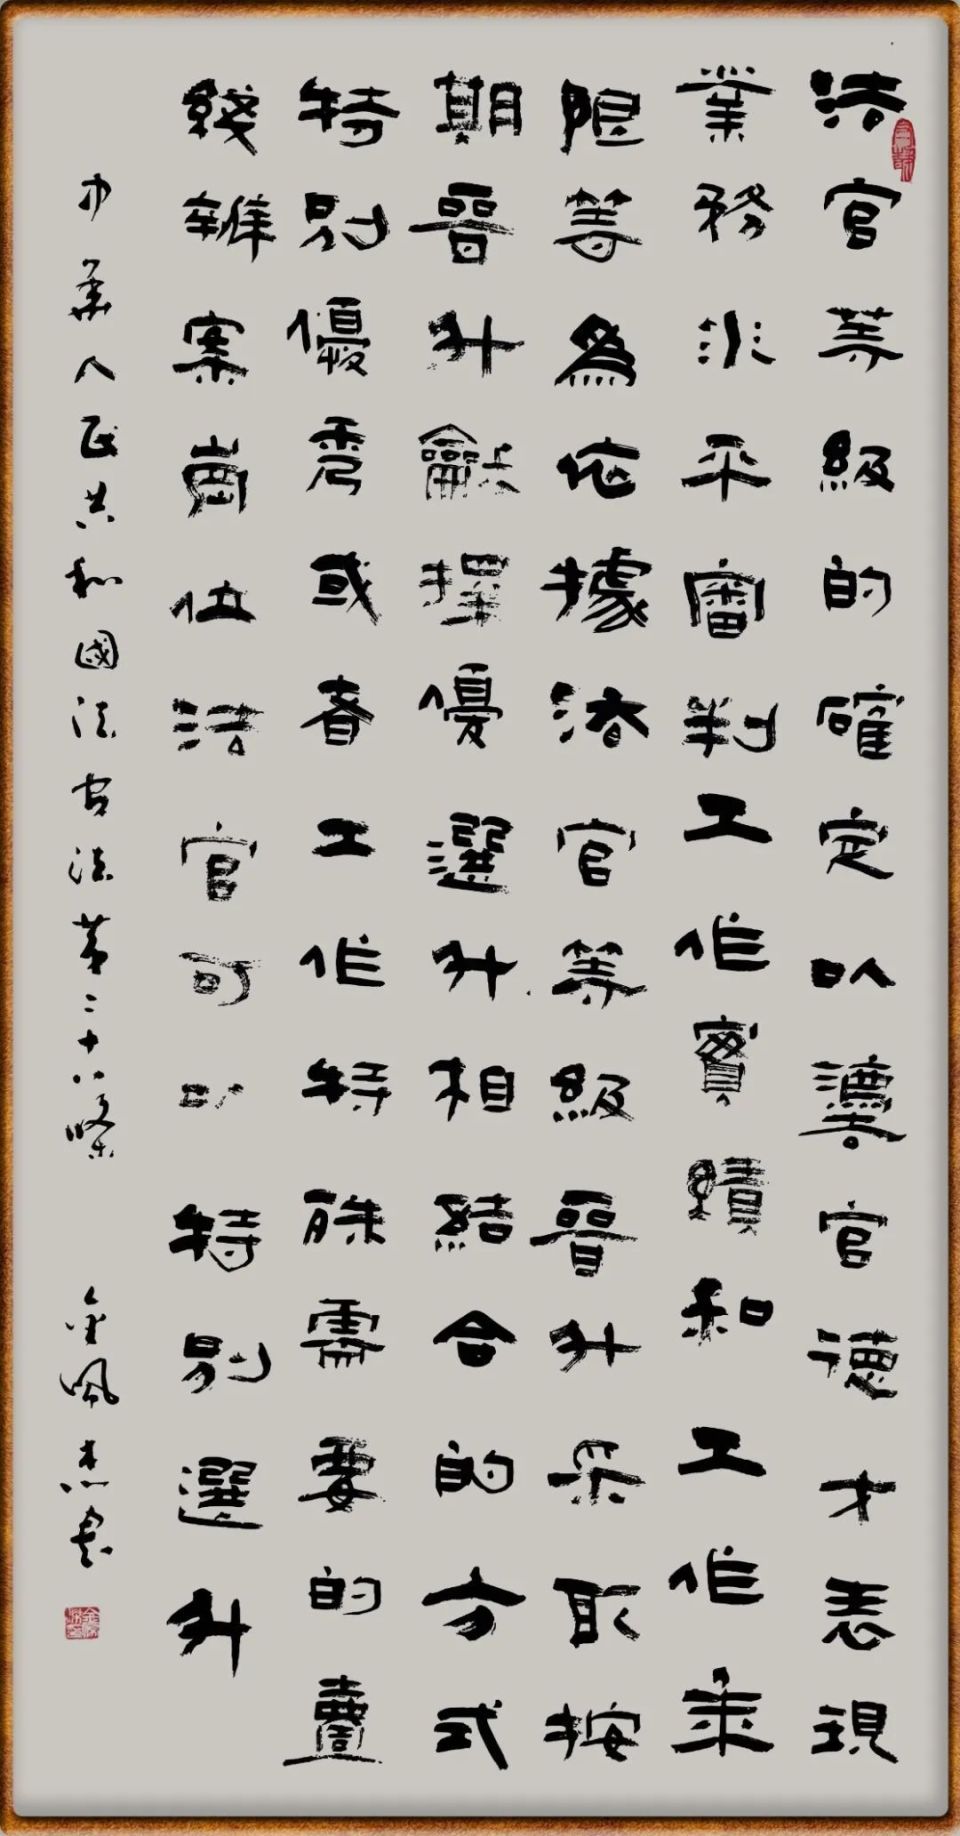 法官等級的確定以灋官德才表現
業務水平審判工作實績和工作年
限等爲依據法官等級晉升采取按
期晉升龢擇優選升相結合的方式
特別優秀或者工作特殊需要的壹
綫辦案崗位法官可以特別選升
中華人民共和國法官法第二十八條
金 杰書